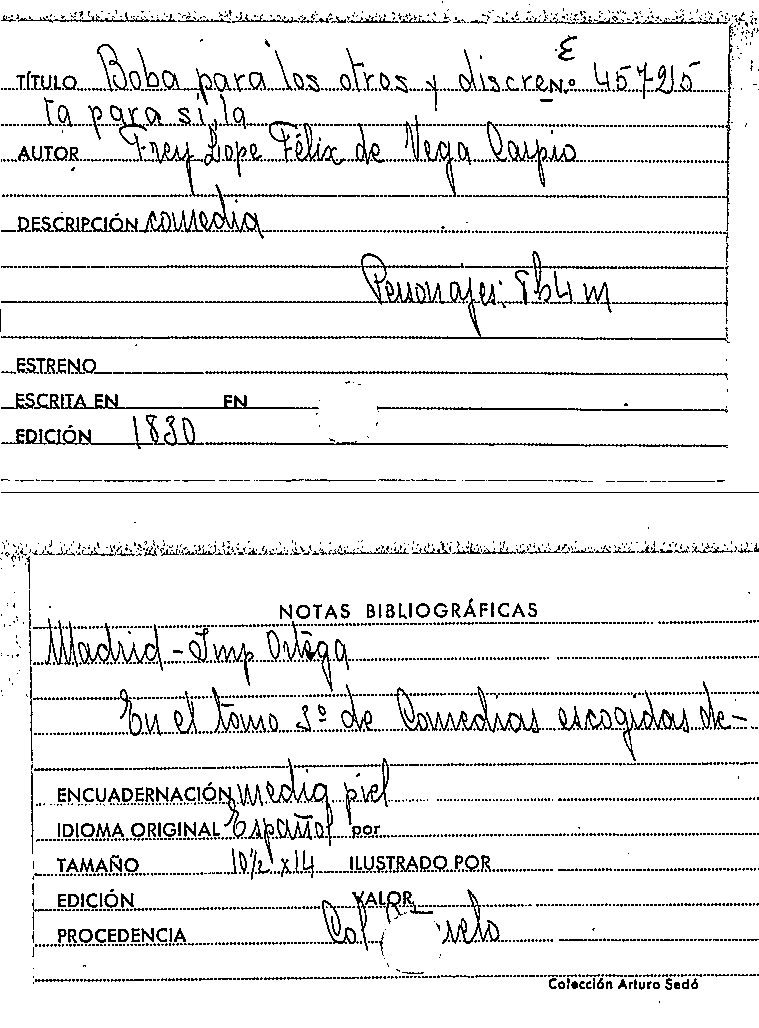 TÍTULO Boba para los otros y discre N.º 45725
ta para sí, la
AUTOR Frey Lope Félix de Vega Carpio
DESCRIPCIÓN comedia
Personajes: 8h 4m
ESTRENO
ESCRITA EN EN
EDICIÓN 1830
NOTAS BIBLIOGRÁFICAS
Madrid - Imp Ortega
En el tomo 3º de Comedias escogidas de-
ENCUADERNACIÓN media piel
IDIOMA ORIGINAL Español por
TAMAÑO 10½ x 14 ILUSTRADO POR
EDICIÓN VALOR
PROCEDENCIA Col
Colección Arturo Sedó